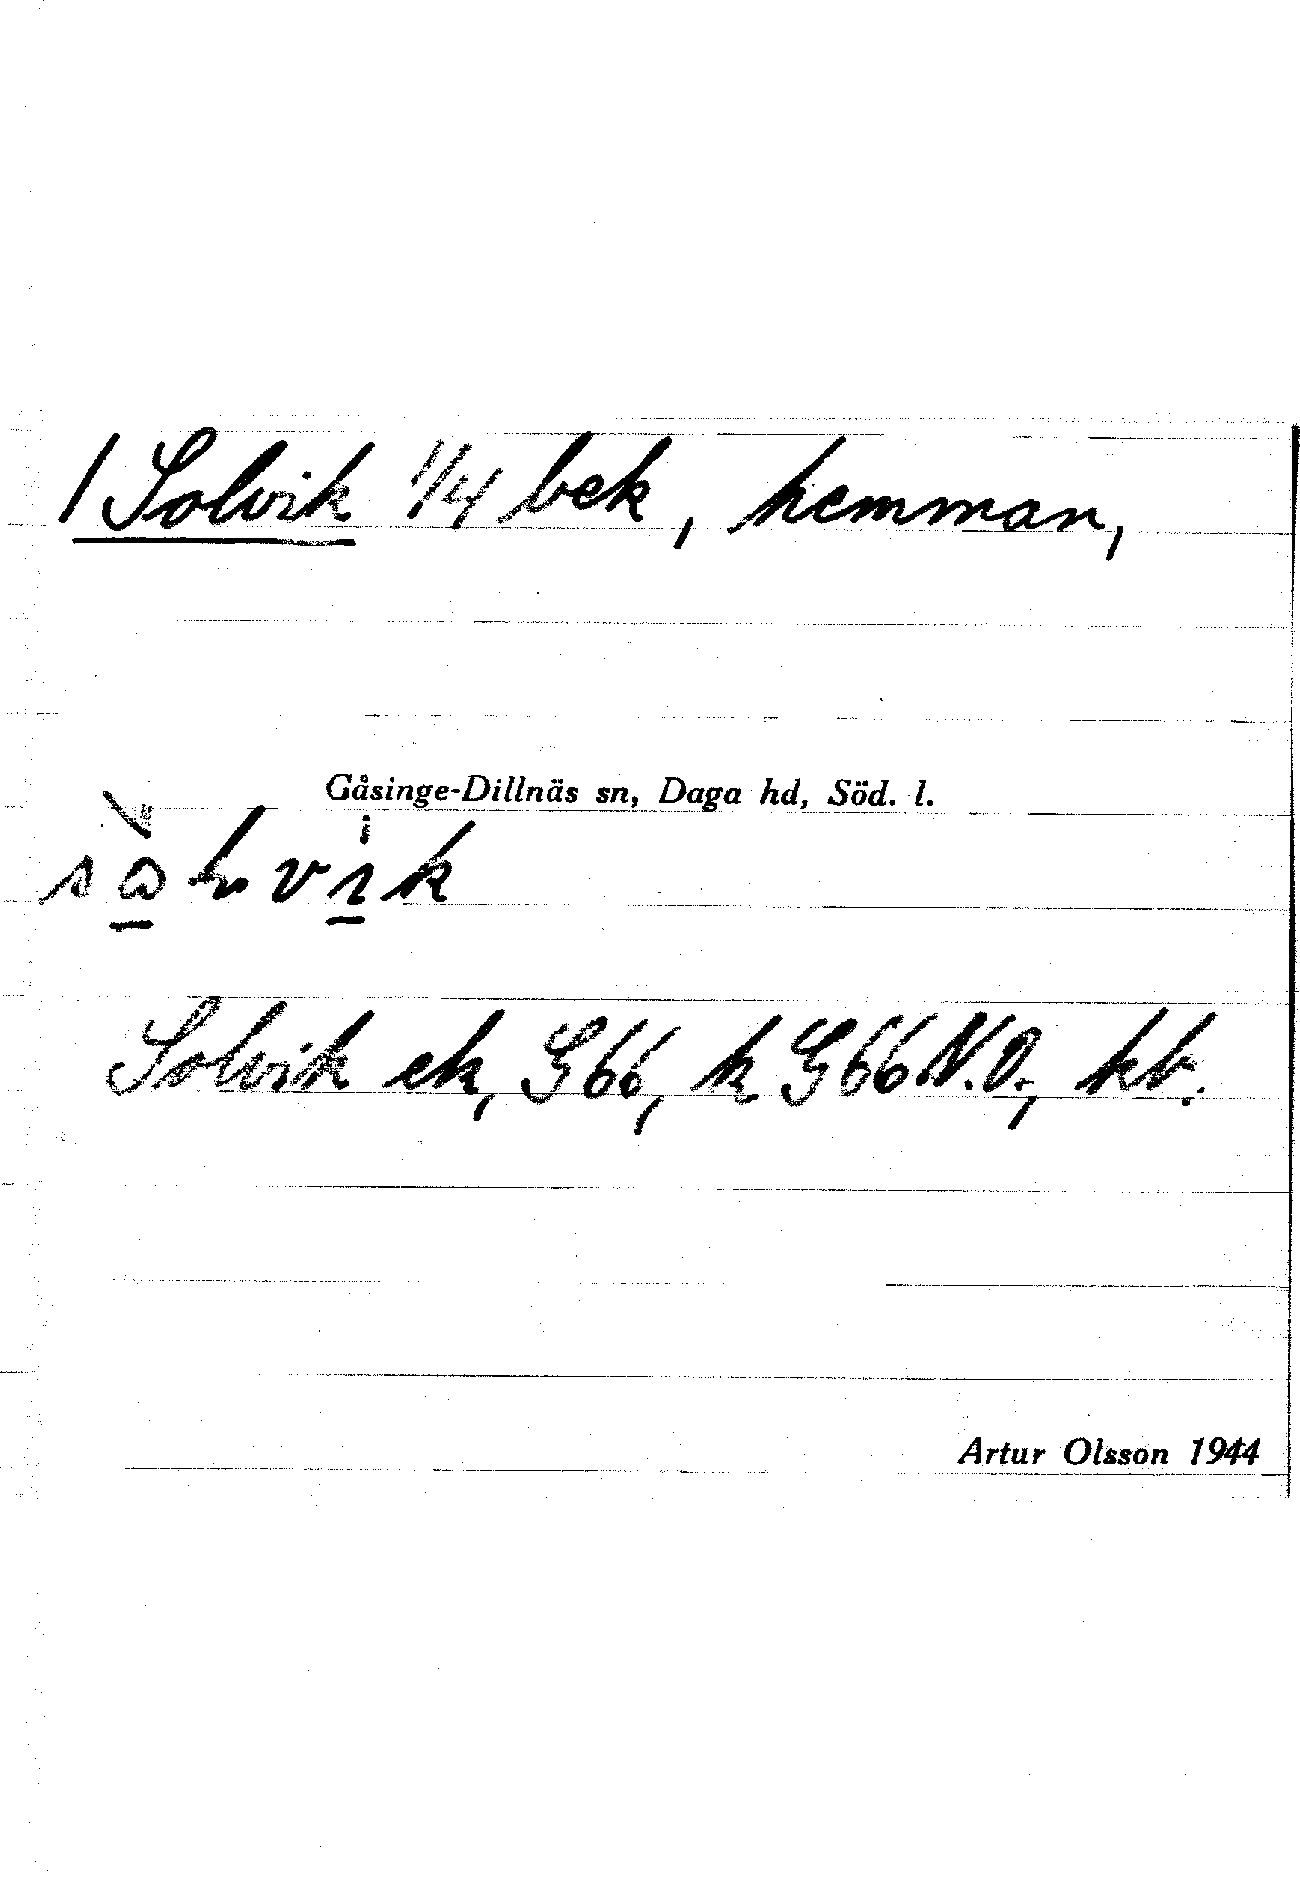 / Solvik 1/4 bek, hemman,
Gåsinge-Dillnäs sn, Daga hd, Söd. l.
Solvik ek, G66, k G66 N.O., kb.
Artur Olsson 1944